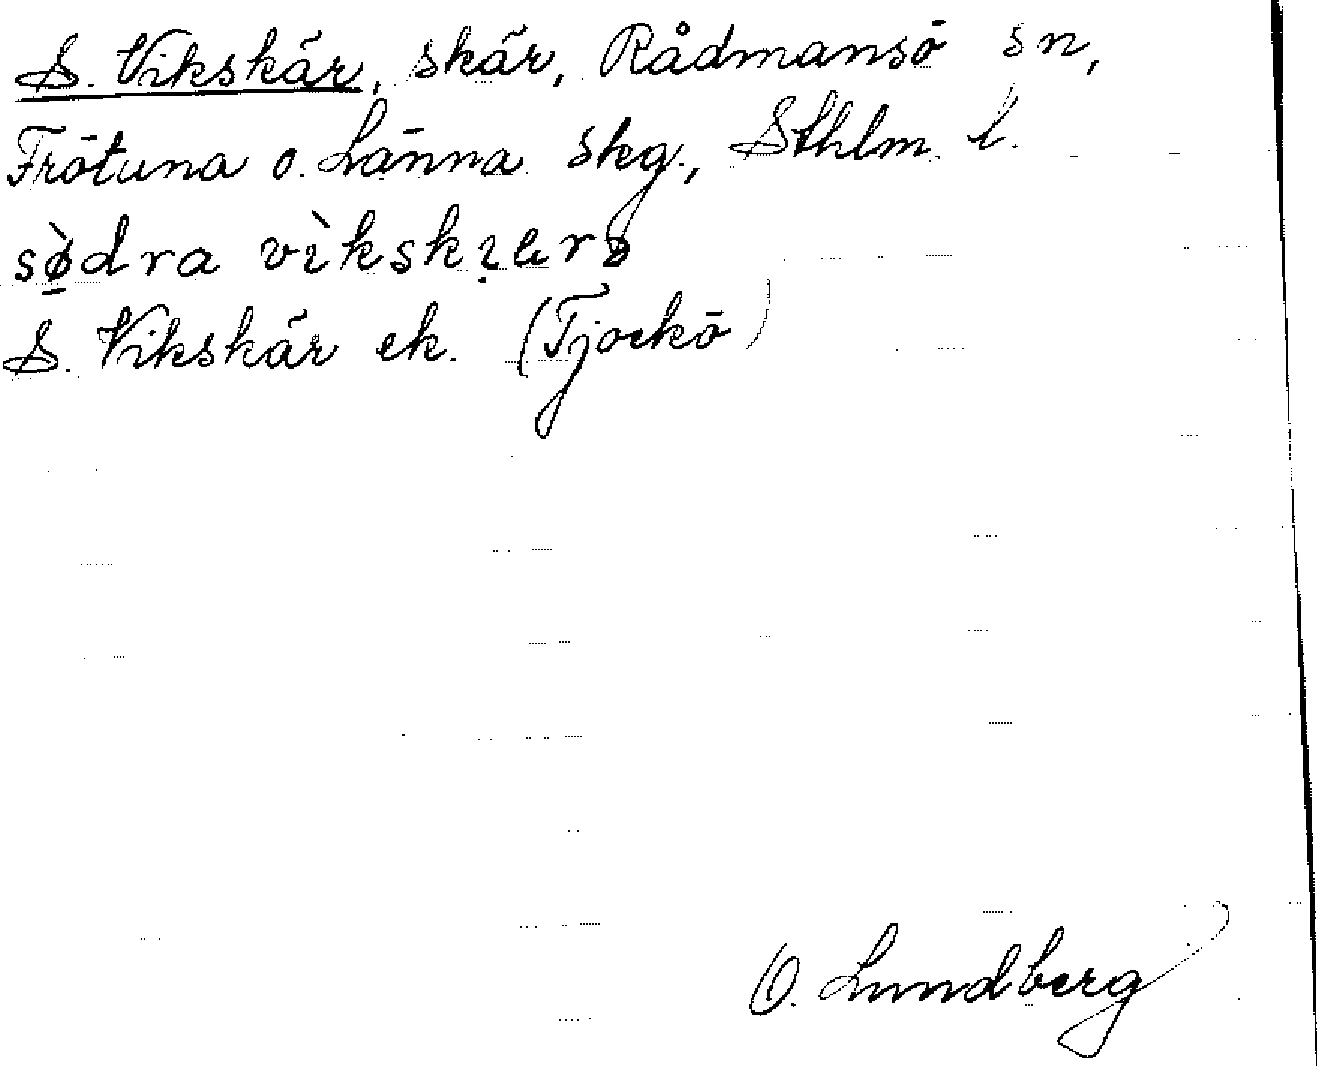 S. Vikskär, skär, Rådmansö sn,
Frötuna o. Länna skg., Sthlm l.
sø̀dra vìkskærə
S. Vikskär ek. (Tjockö)
O. Lundberg